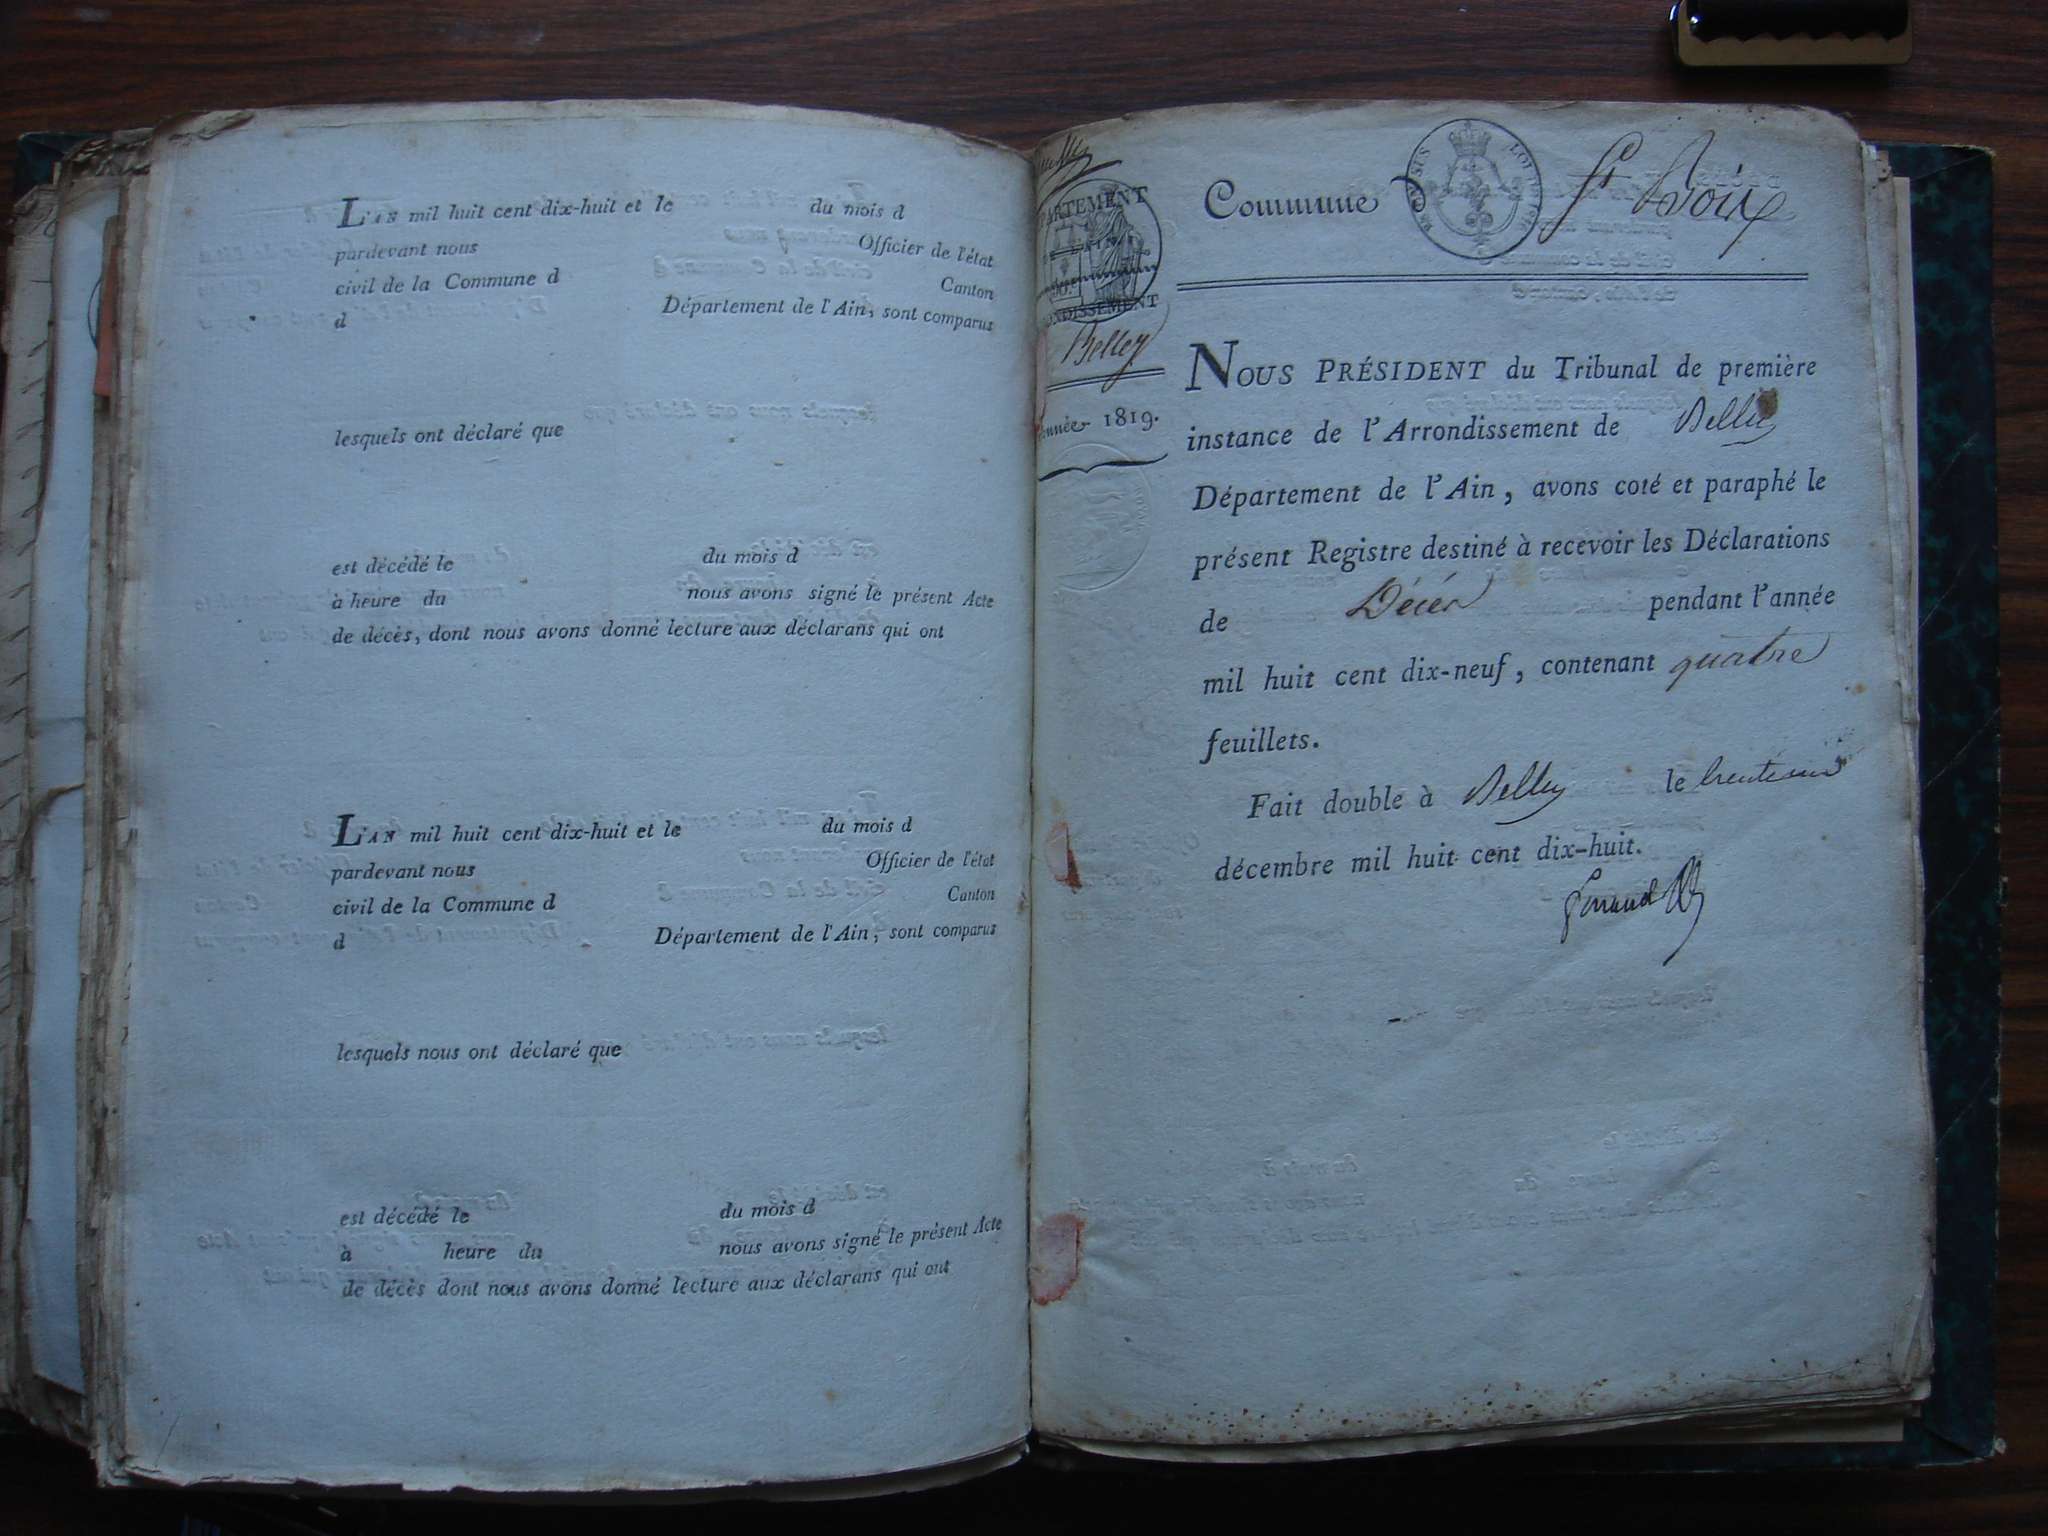 L'AN mil huit cent dix-huit et le du mois d
pardevant nous Officier de l'état
civil de la Commune d Canton
d Département de l'Ain, sont comparus
lesquels ont déclaré que
est décédé le du mois d
à heure du nous avons signé le présent Acte
de décès, dont nous avons donné lecture aux déclarans qui ont
L'AN mil huit cent dix-huit et le du mois d
pardevant nous Officier de l'état
civil de la Commune d Canton
d Département de l'Ain, sont comparus
lesquels nous ont déclaré que
est décédé le du mois d
à heure du nous avons signé le présent Acte
de décès dont nous avons donné lecture aux déclarans qui ont
PARTEMENT
DE L'AIN
ONDISSEMENT
Belley
Année 1819.
Commune St Boix
LOUIS
NOUS PRÉSIDENT du Tribunal de première
instance de l'Arrondissement de Belley
Département de l'Ain, avons coté et paraphé le
présent Registre destiné à recevoir les Déclarations
de Décès pendant l'année
mil huit cent dix-neuf, contenant quatre
feuillets.
Fait double à Belley le trente un
décembre mil huit cent dix-huit.